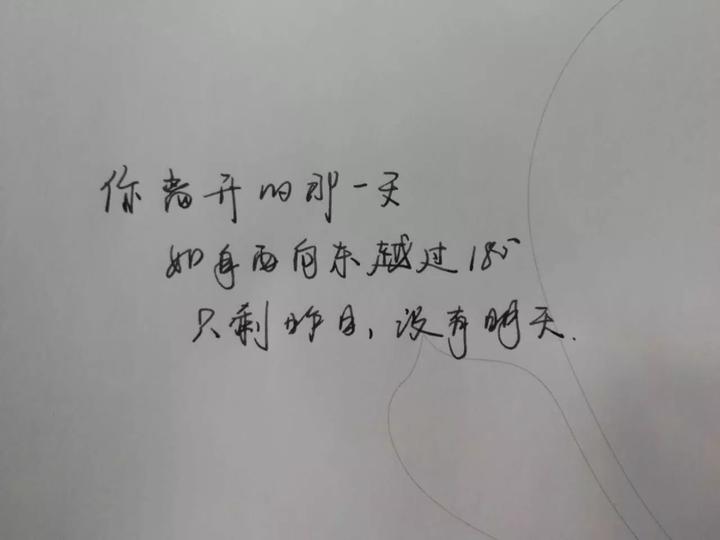 你离开的那一天
如自西向东越过180°
只剩昨日,没有明天.